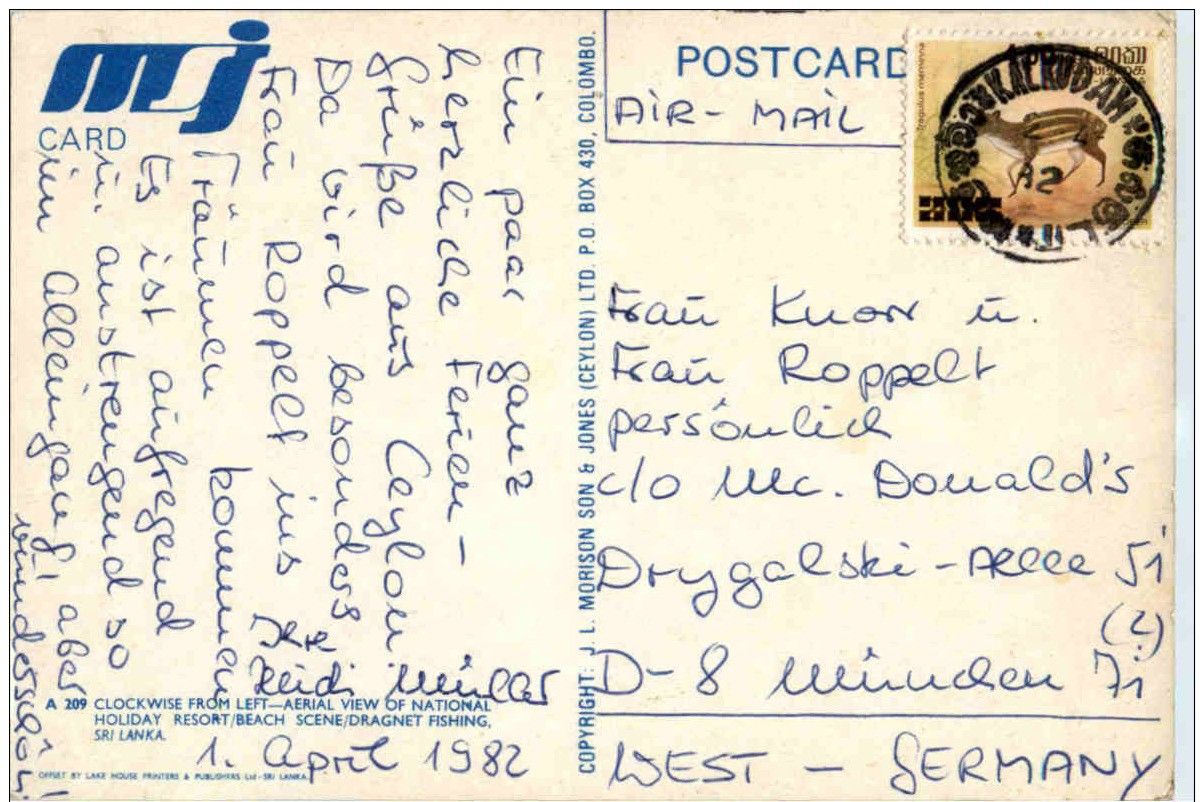 msj
CARD
POSTCARD
AIR-MAIL
Tragulus meminna
KALKUDAH
82
Ein paar ganz
herzliche Ferien-
grüße aus Ceylon.
Da wird besonders
Frau Roppelt ins
Träumen kommen
Es ist aufregend
u. anstrengend so
im Alleingang! aber
wunderschön!
Ihre
Heidi Müller
1. April 1982
COPYRIGHT: J. L. MORISON SON & JONES (CEYLON) LTD. P.O. BOX 430, COLOMBO.
Frau Knorr u.
Frau Roppelt
persönlich
c/o Mc. Donald's
Drygalski-Allee 51
(?)
D-8 München 71
WEST - GERMANY
A 209 CLOCKWISE FROM LEFT—AERIAL VIEW OF NATIONAL
HOLIDAY RESORT/BEACH SCENE/DRAGNET FISHING,
SRI LANKA.
OFFSET BY LAKE HOUSE PRINTERS & PUBLISHERS Ltd-SRI LANKA.